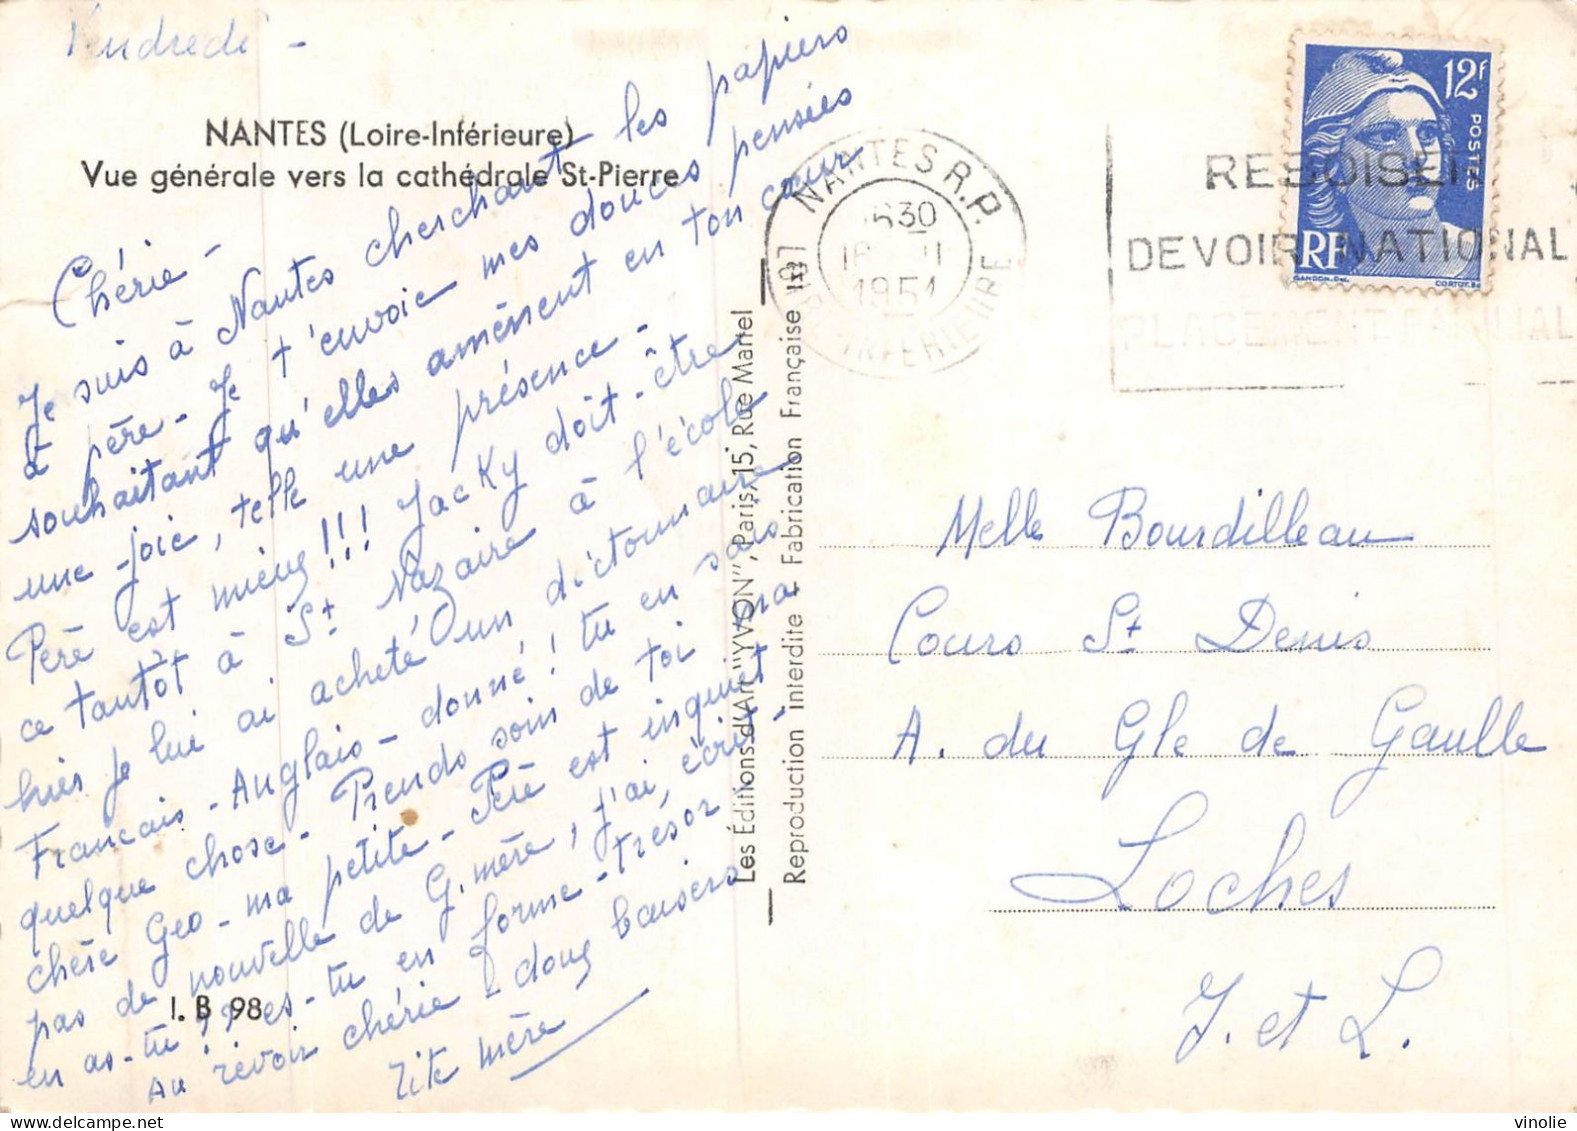 Vendredi -
NANTES (Loire-Inférieure)
Vue générale vers la cathédrale St-Pierre
Chérie -
Je suis à Nantes cherchant les papiers
à père - Je t'envoie mes douces pensées
souhaitant qu'elles amènent en ton cœur
une joie, telle une présence -
Père est mieux !!! Jacky doit-être
ce tantôt à St Nazaire à l'école
hier je lui ai acheté un dictonnaire
Francais - Anglais - donné ! tu en sais
quelque chose - Prends soin de toi ma
chère Geo - ma petite - Père est inquiet
pas de nouvelle de G. mère, j'ai écrit -
en as-tu ?? es-tu en forme - trésor
Au revoir chérie - doux baisers
Tite mère
I. B 98
Les Éditions d'Art "YVON", Paris, 15, Rue Martel
Reproduction Interdite - Fabrication Française
NANTES R.P.
LOIRE-INFERIEURE
1951
REBOISER
DEVOIR NATIONAL
PLACEMENT FAMILIAL
12f
POSTES
RF
GANDON.Del.
CORTOT.Sc
Melle Bourdilleau
Cours St Denis
A. du Gle de Gaulle
Loches
I. et L.
vinolie